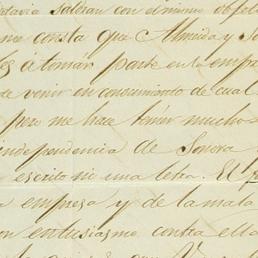 tavia saldran con el mismo objeto
me consta que Almada y So
les a tomar parte en la empre
de venir en conocimiento de cual
pero me hace temer mucho
independencia de Sonora
escrito ni una letra. El
a empresa y de la mala
on entusiasmo contra ella